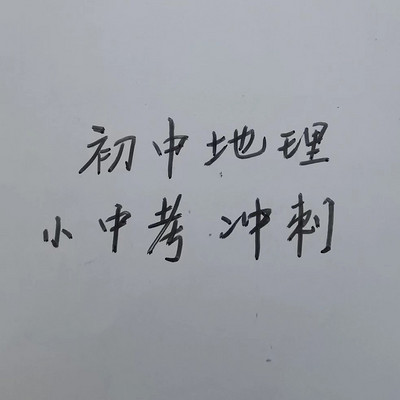 初中地理
小中考冲刺